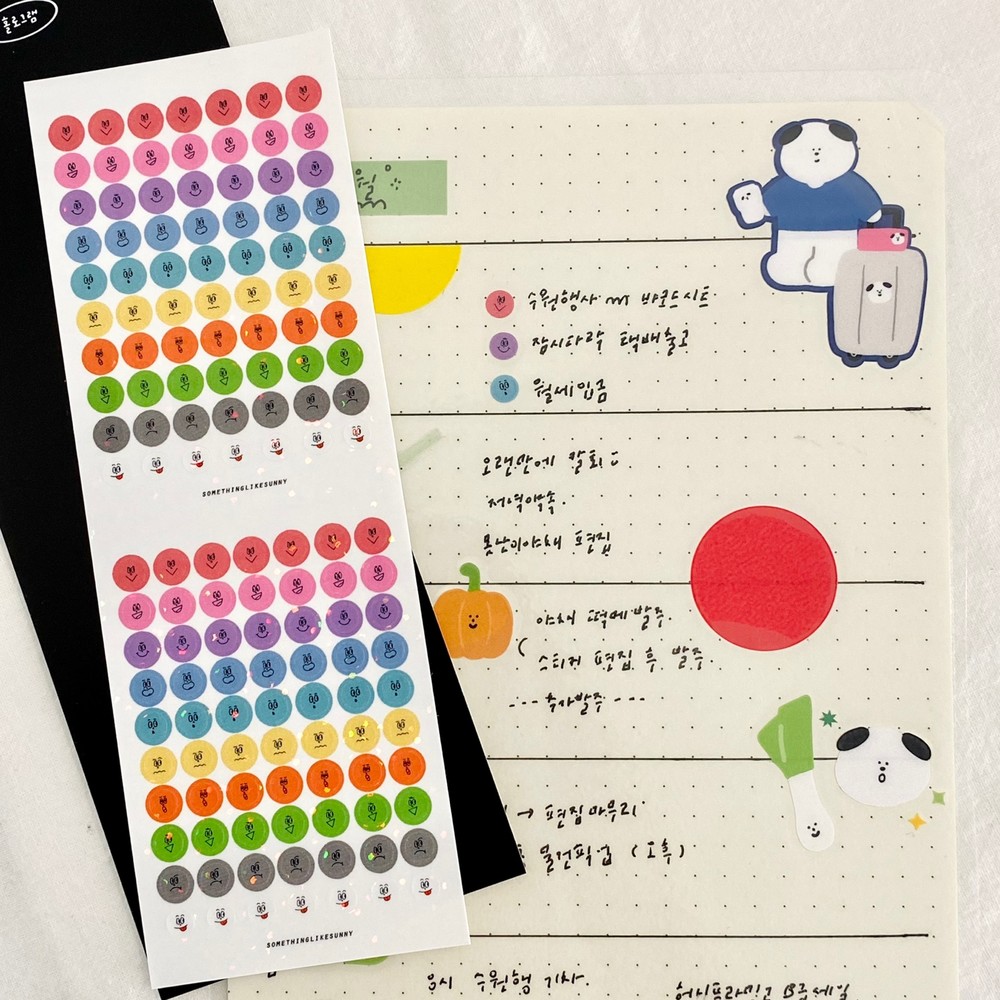 홀로그램
월
수원행사 바코드시트
잠시다락 택배출고
월세입금
SOMETHINGLIKESUNNY
오랜만에 칼퇴
저녁약속.
못난이야채 편집
야채 떡메발주.
스티커 편집 후 발주.
--- 추가발주 ---
→ 편집마무리
물건픽업 (오후)
SOMETHINGLIKESUNNY
수원행 기차.